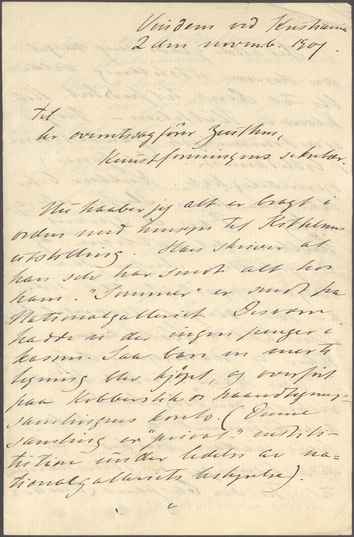 ved Kristiania
2 den novemb. 1907.
Til
hr overretssagfører
Kunstforeningens sekretær.
Nu haaber jeg alt er bragt i
orden med hensyn til
utstilling. Han skriver at
han selv har sendt alt hos
ham. "Sommer" er sendt fra
Nationalgalleriet. Desværre
hadde de der ingen penger i
kassen. Saa bare en
tegning blev kjøpt, og overført
paa Kobberstik og haandtegnings-
samlingens konto. (Denne
samling er "privat" institu-
tion under ledelse av na-
tionalgalleriets bestyrelse).